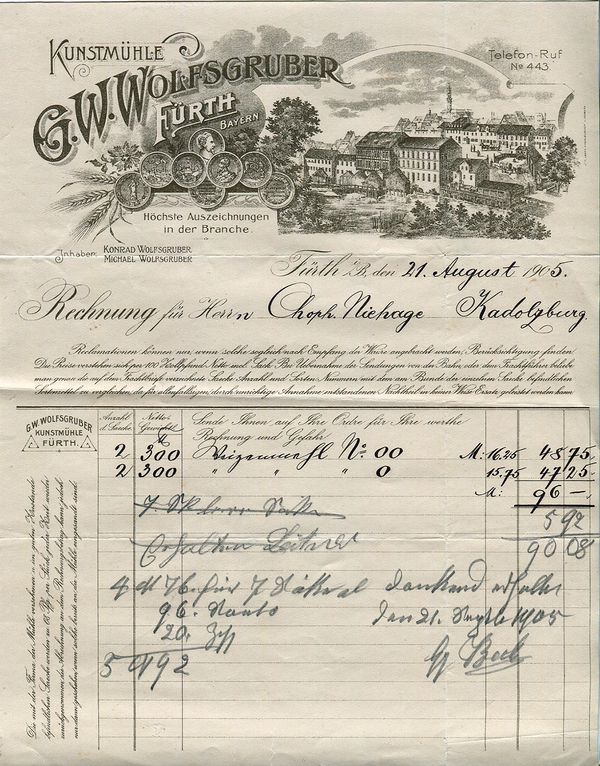 KUNSTMÜHLE
G.W. WOLFSGRUBER
FÜRTH
BAYERN
Telefon-Ruf
No 443.
Höchste Auszeichnungen
in der Branche.
Inhaber: KONRAD WOLFSGRUBER
MICHAEL WOLFSGRUBER
Fürth i/B, den 21. August 1905.
Rechnung für Herrn Choph. Niehage Kadolzburg
Reclamationen können nur, wenn solche sogleich nach Empfang der Waare angebracht werden, Berücksichtigung finden.
Die Preise verstehen sich per 100 Kollpfund Netto incl. Sack. Bei Uebernahme der Sendungen von der Bahn, oder dem Frachtführer beliebe
man genau die auf dem Frachtbriefe verzeichnete Sack-Anzahl und Sorten Nummern mit dem am Bunde der einzelnen Säcke befindlichen
Sortenzettel zu vergleichen, da für allenfallsigen durch unrichtige Annahme entstandenen Nachtheil in keiner Weise Ersatz geleistet werden kann.
G.W. WOLFSGRUBER
KUNSTMÜHLE
FÜRTH.
Anzahl d. Säcke
Netto-Gewicht
Sende Ihnen auf Ihre Ordre für Ihre werthe
Rechnung und Gefahr
2 300 Weizenmehl No. 00 M: 16.25 48 75
2 300 " " " 0 15.75 47 25
M: 96 —
7. Sk leere
5 92
Erhalten
90 08
4 M 76. für 7 Säcke
dankend erhalten
96.
den 21. Septb 1905
20.
5 92
Die mit der Firma der Mühle versehenen u. in gutem Zustande
befindlichen Säcke werden zu